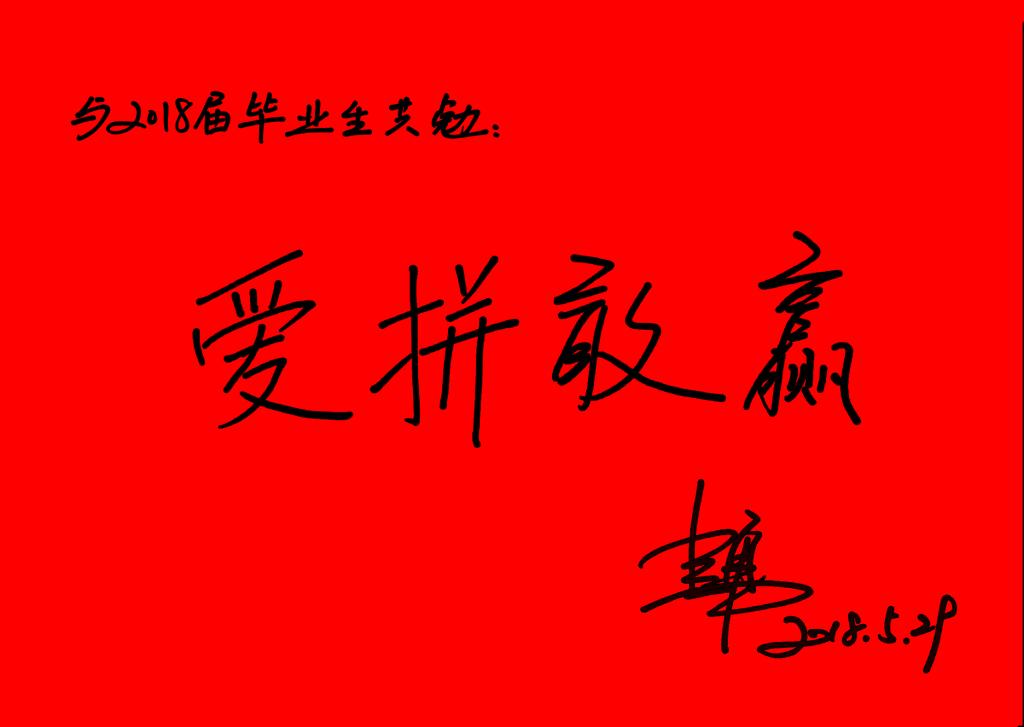 与2018届毕业生共勉:
爱拼敢赢
2018.5.29